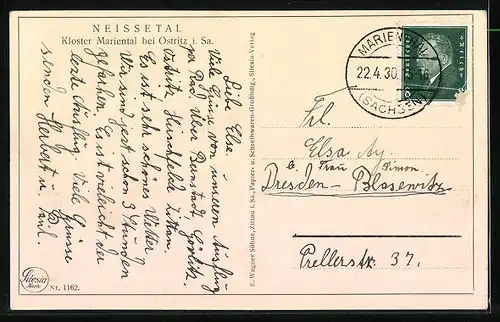 NEISSETAL
Kloster Mariental bei Ostritz i. Sa.
Liebe Else
Viele Grüsse von unseren Ausflug
per Rad. Über Bernstadt Görlitz,
Ostritz Hirschfelde Zittau.
Es ist sehr schönes Wetter.
Wir sind jetzt schon 3 Stunden
gefahren. Es ist vielleicht der
letzte Ausflug. Viele Grüsse
senden Herbert u.
Silesia
Nr. 1162.
E. Wagner Söhne, Zittau i. Sa., Papier- u. Schreibwaren-Großhdlg., Silesia-Verlag
MARIENTHAL
22.4.30.
(SACHSEN)
Frl.
Elsa Ay.
b. Frau Simon
Dresden-Blasewitz
Prellerstr. 37.